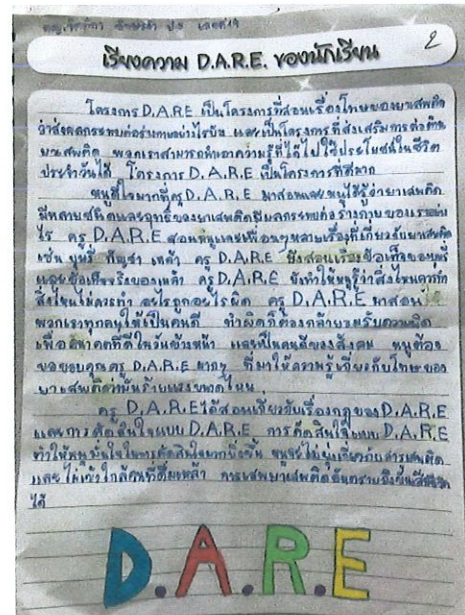 ป.5 เลขที่ 19
2
เรียงความ D.A.R.E. ของนักเรียน
โครงการ D.A.R.E เป็นโครงการที่สอนเรื่องโทษของยาเสพติด
ว่าส่งผลกระทบต่อร่างกายอย่างไรบ้าง และเป็นโครงการที่ส่งเสริมการต่อต้าน
ยาเสพติด พวกเราสามารถนำเอาความรู้ที่ได้ไปใช้ประโยชน์ในชีวิต
ประจำวันได้ โครงการ D.A.R.E เป็นโครงการที่ดีมาก
หนูดีใจมากที่ครู D.A.R.E มาสอนและหนูได้รู้ว่ายาเสพติด
มีหลายชนิดและฤทธิ์ของยาเสพติดมีผลกระทบต่อร่างกายของเราอย่าง
ไร ครู D.A.R.E สอนหนูและเพื่อนๆหลายเรื่องที่เกี่ยวกับยาเสพติด
เช่น บุหรี่ กัญชา เหล้า ครู D.A.R.E ยังสอนเรื่องข้อเท็จจริงของบุหรี่
และข้อเท็จจริงของเหล้า ครู D.A.R.E ยังทำให้หนูรู้ว่าสิ่งไหนควรทำ
สิ่งไหนไม่ควรทำ อะไรถูกอะไรผิด ครู D.A.R.E มาสอน
พวกเราทุกคนให้เป็นคนดี ทำผิดก็ต้องกล้ายอมรับความผิด
เพื่ออนาคตที่ดีในวันข้างหน้า และเป็นคนดีของสังคม หนูต้อง
ขอขอบคุณครู D.A.R.E มากๆ ที่มาให้ความรู้เกี่ยวกับโทษของ
ยาเสพติดว่ามันร้ายแรงขนาดไหน
ครู D.A.R.E ได้สอนเกี่ยวกับเรื่องกฎของ D.A.R.E
และการตัดสินใจแบบ D.A.R.E การตัดสินใจแบบ D.A.R.E
ทำให้หนูมั่นใจในการตัดสินใจมากยิ่งขึ้น หนูจะไม่ยุ่งเกี่ยวกับสารเสพติด
และไม่เข้าใกล้คนที่ดื่มเหล้า การเสพยาเสพติดอันตรายถึงขั้นเสียชีวิต
ได้
D.A.R.E